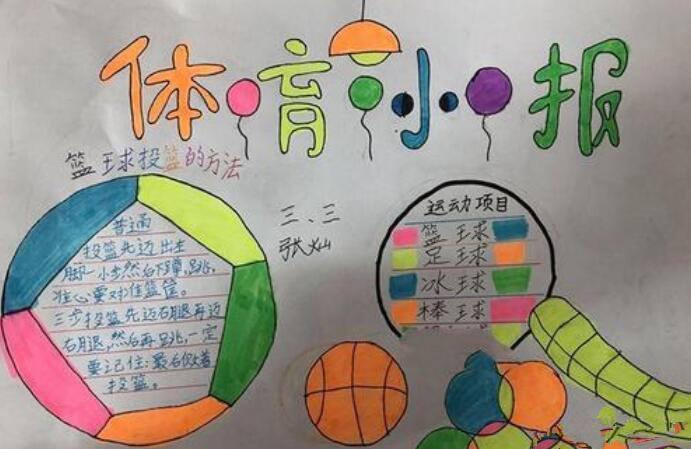 体育小报
篮球投篮的方法
三、三
张灿
普通
投篮先迈出左
脚一小步然后下蹲,跳,
准心要对准篮筐。
三步投篮先迈右腿再迈
右腿,然后再跳,一定
要记住:最后
投篮。
运动项目
篮球
足球
冰球
棒球